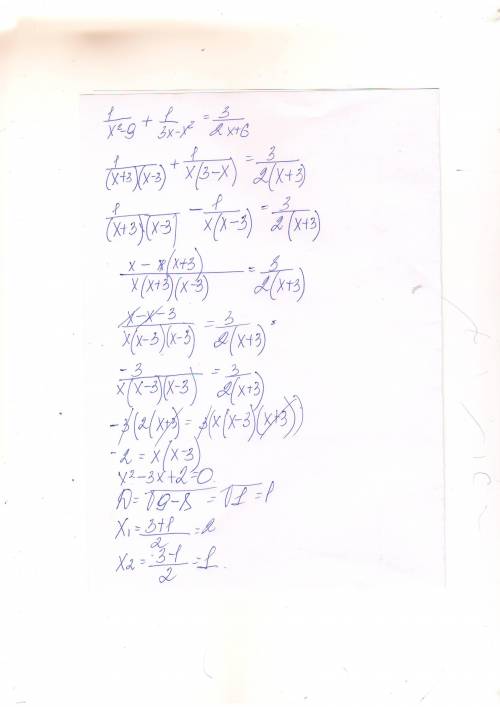 1/(x²-9) + 1/(3x-x²) = 3/(2x+6)
1/((x+3)(x-3)) + 1/(x(3-x)) = 3/(2(x+3))
1/((x+3)(x-3)) - 1/(x(x-3)) = 3/(2(x+3))
(x-(x+3))/(x(x+3)(x-3)) = 3/(2(x+3))
(x-x-3)/(x(x-3)(x-3)) = 3/(2(x+3))
-3/(x(x-3)(x-3)) = 3/(2(x+3))
-3(2(x+3)) = 3(x(x-3)(x+3))
-2 = x(x-3)
x²-3x+2=0.
D=√9-8 = √1 = 1
x₁ = (3+1)/2 = 2
x₂ = (3-1)/2 = 1.